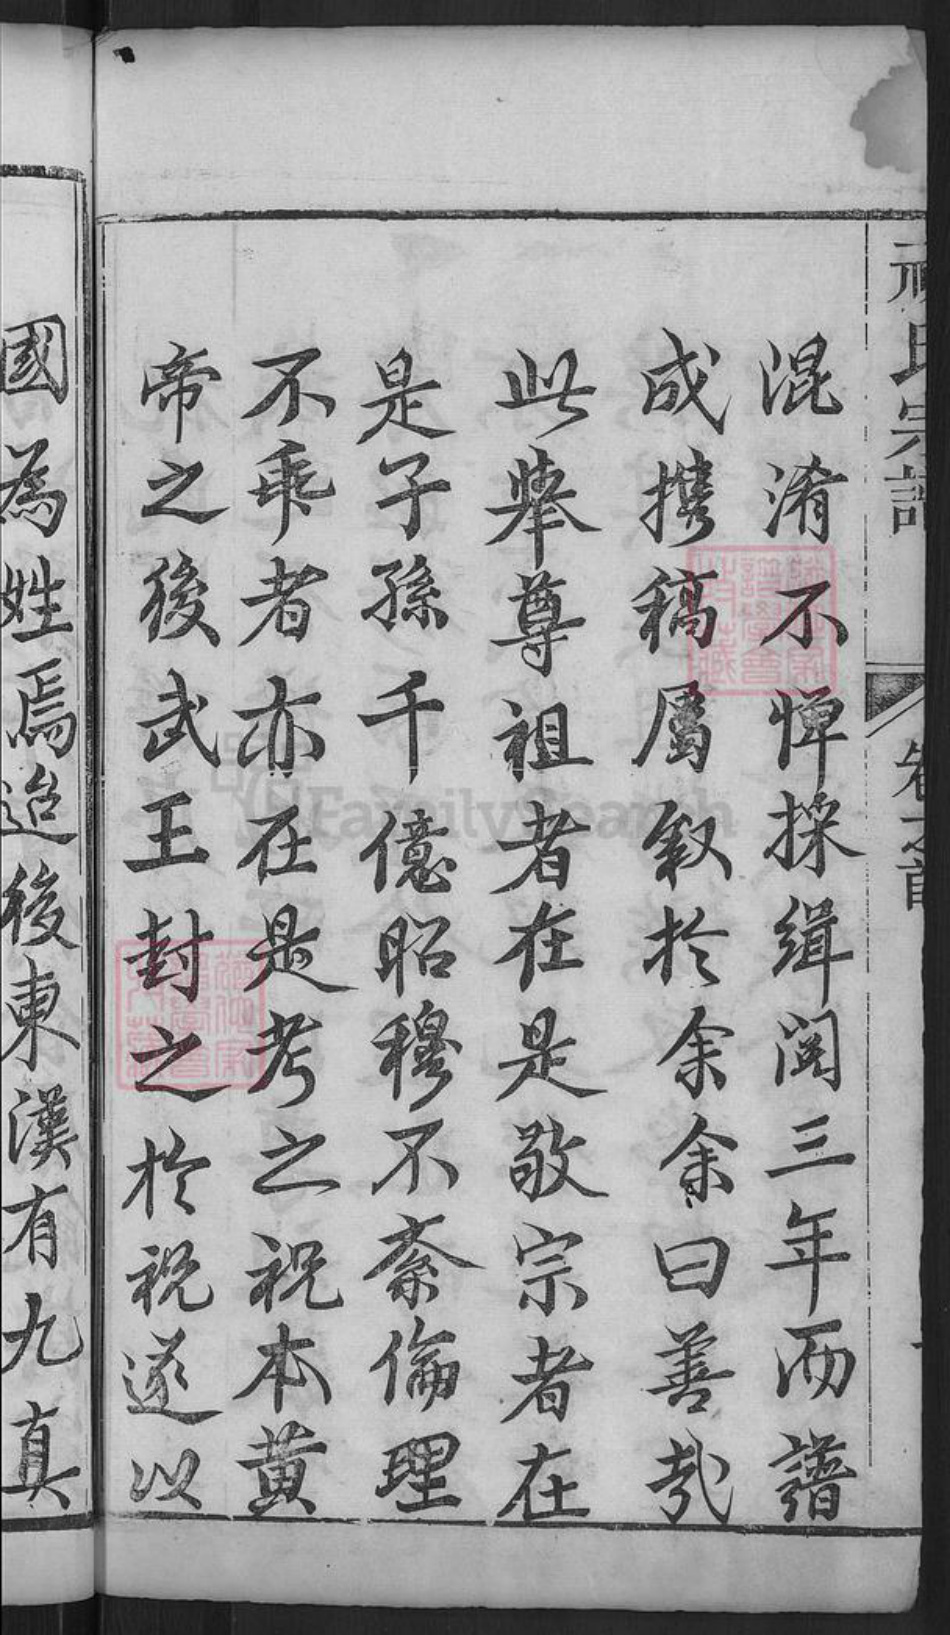 祝氏宗譜
卷之首
混淆不憚採緝閱三年而譜
成携稿屬叙於余余曰善哉
此舉尊祖者在是敬宗者在
是子孫千億昭穆不紊倫理
不乖者亦在是考之祝本黄
帝之後武王封之於祝遂以
國為姓焉迨後東漢有九真
FamilySearch